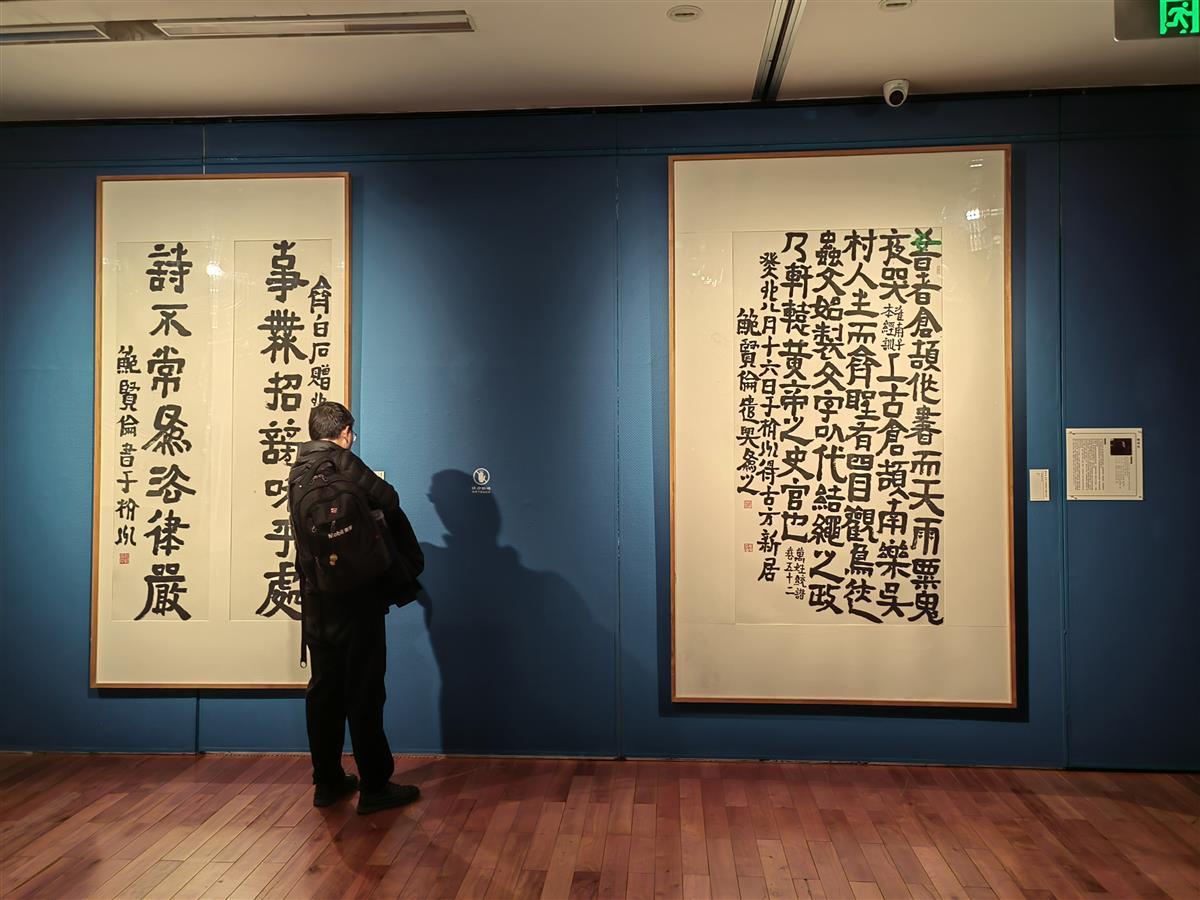 昔者倉頡作書而天雨粟鬼
夜哭
淮南子
本經訓
上古倉頡南樂吳
村人生而齊聖有四目觀鳥迹
蟲文始製文字以代結繩之政
乃軒轅黃帝之史官也
萬姓統譜
卷五十二
癸卯八月十六日于杭州得古方新居
鮑賢倫遣興為之
齊白石贈
事業招謗 處
詩不常為 律嚴
鮑賢倫書于杭州